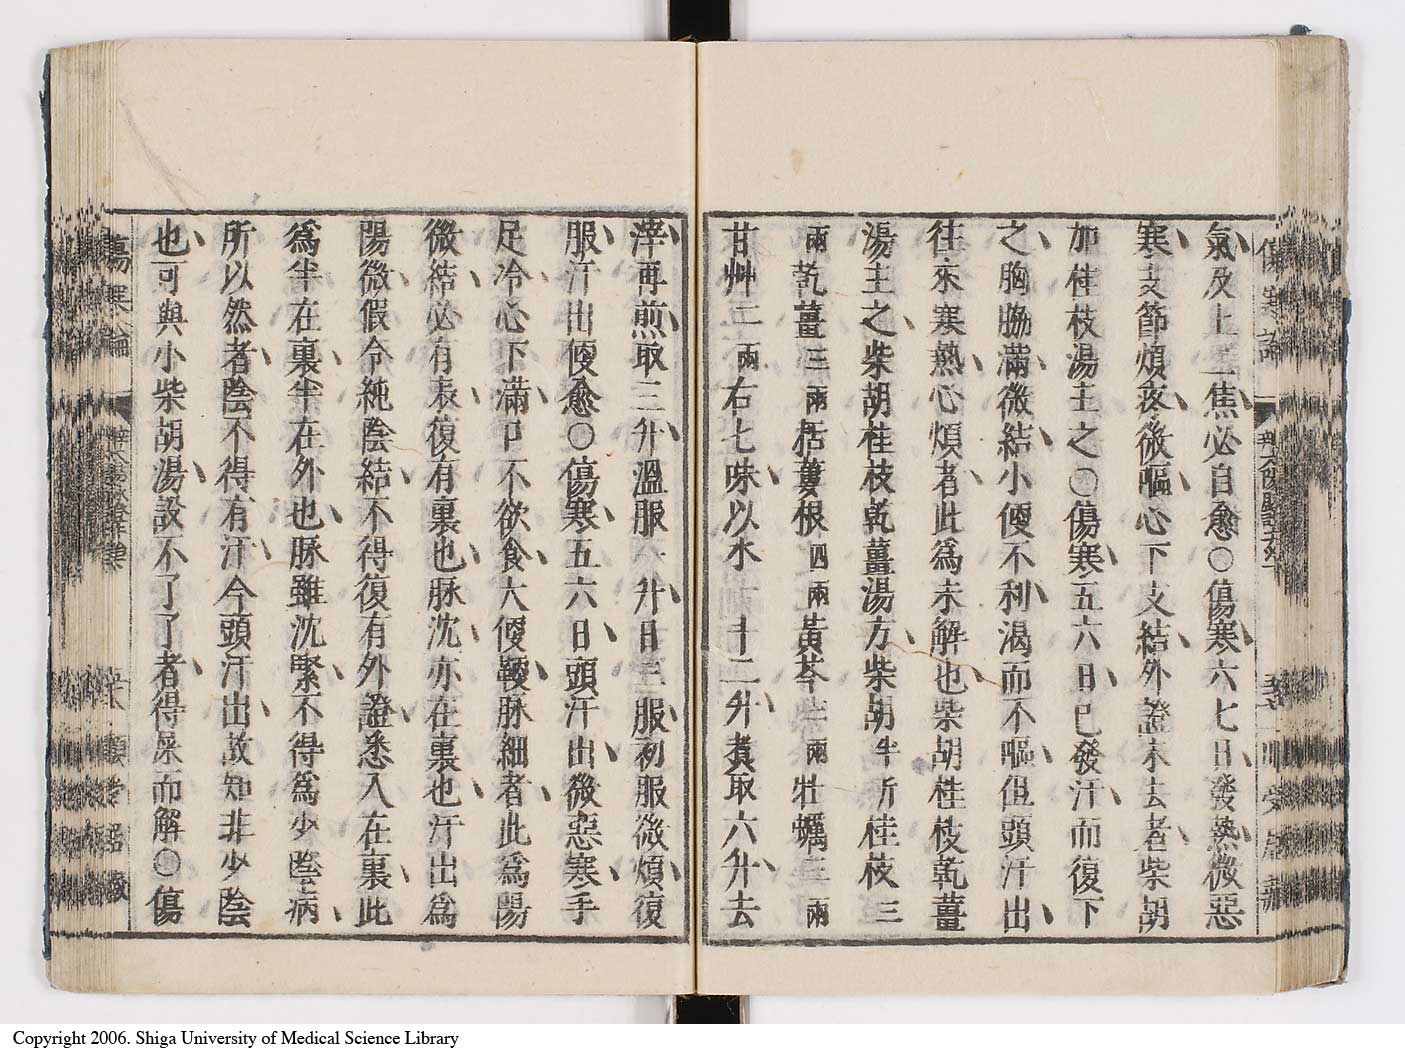 氣及上二焦必自愈○傷寒六七日發熱微惡
寒支節煩疼微嘔心下支結外證未去者柴胡
加桂枝湯主之○傷寒五六日已發汗而復下
之胸脇滿微結小便不利渴而不嘔但頭汗出
往來寒熱心煩者此爲未解也柴胡桂枝乾薑
湯主之柴胡桂枝乾薑湯方柴胡半斤桂枝三
兩乾薑三兩栝蔞根四兩黃芩 兩牡蠣 兩
甘艸二兩右七味以水一十二升煑取六升去
滓再煎取三升溫服一升日三服初服微煩復
服汗出便愈○傷寒五六日頭汗出微惡寒手
足冷心下滿口不欲食大便鞕脉細者此爲陽
微結必有表復有裏也脉沈亦在裏也汗出爲
陽微假令純陰結不得復有外證悉入在裏此
爲半在裏半在外也脉雖沈緊不得爲少陰病
所以然者陰不得有汗今頭汗出故知非少陰
也可與小柴胡湯設不了了者得屎而解○傷
傷寒論
傷寒論
Copyright 2006. Shiga University of Medical Science Library